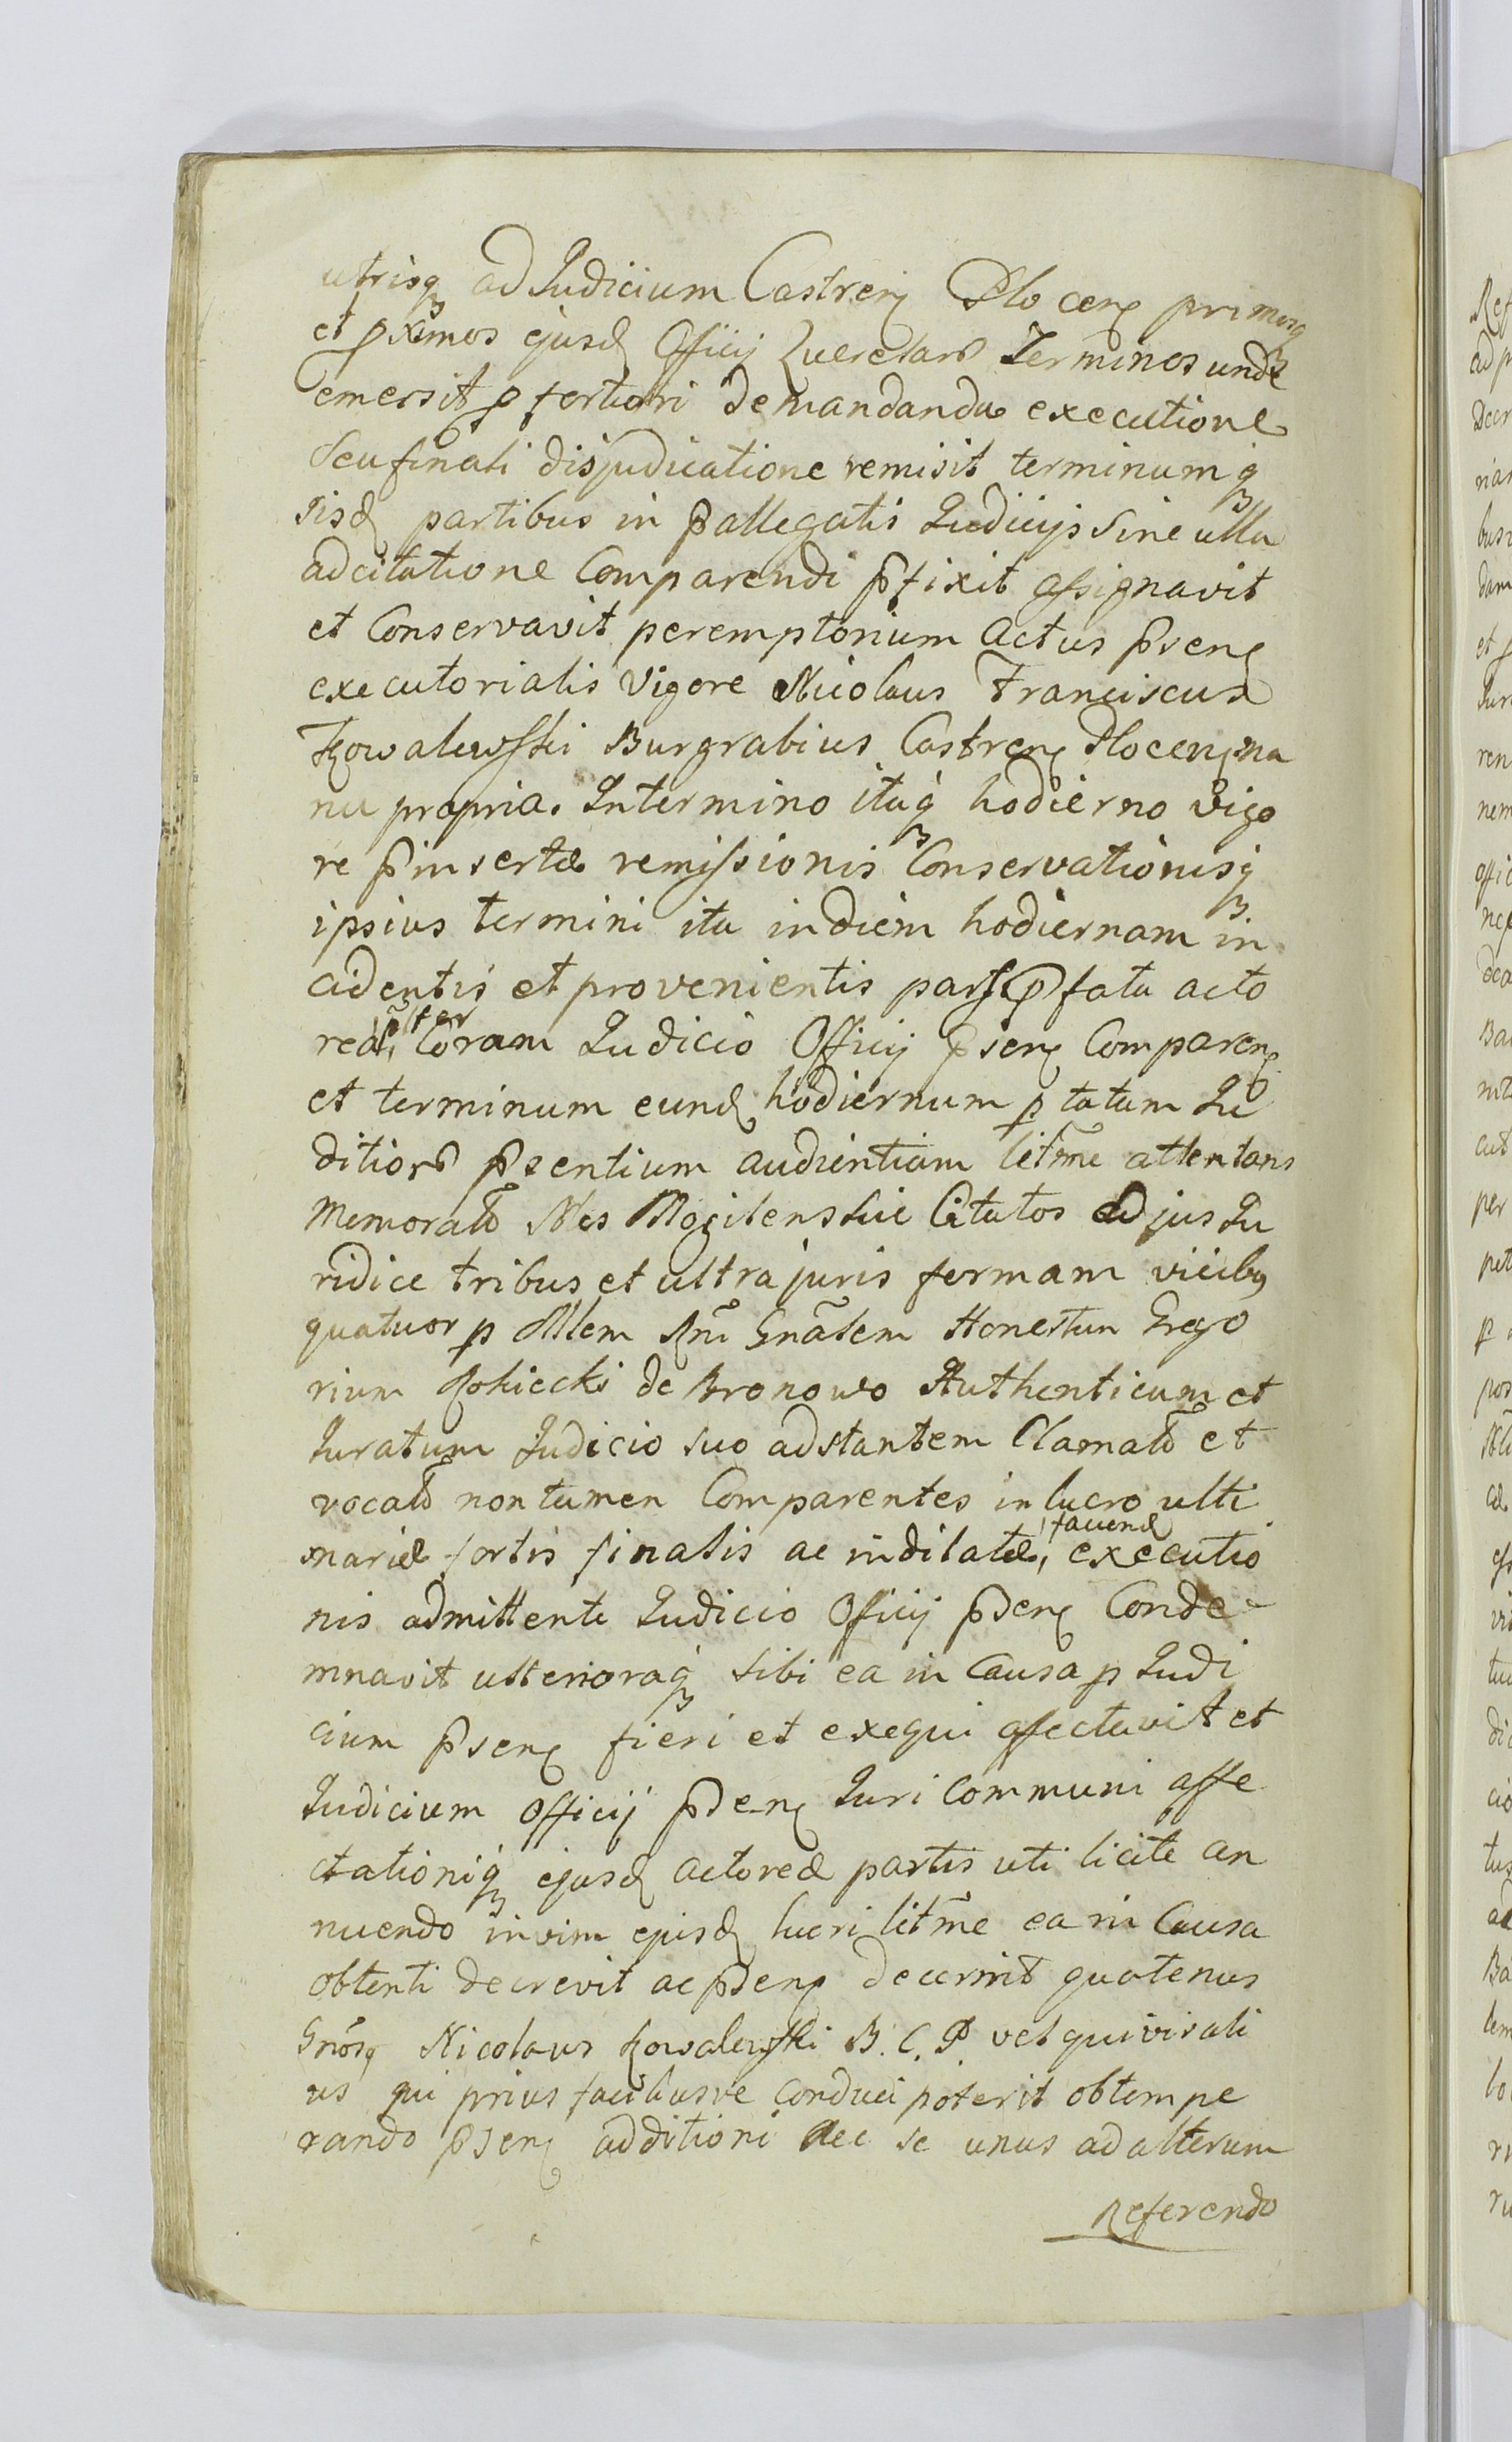 utrisq₃ ad Judicium Castren̄ Plocen̄ primosq₃
et p̱ximos ejusd̄ Officij Querelarō Terminos unde
emersit p̱ fortiori demandandæ executione
seu finali disjudicatione remisit terminumq₃
iisd̄ partibus in p̄allegatis Judicijs sine ulla
adcitatione Comparendi p̄fixit assignavit
et Conservavit peremptorium Actus p̄sen̄
executorialis Vigore Nicolaus Franciscus
Kowalewski Burgrabius Castren̄ Plocen̄ ma
nu propria. In termino itaq₃ hodierno vigo
re p̄insertæ remissionis Conservationisq₃
ipsius termini ita in diem hodiernam in
cidentis et provenientis pars p̄fata acto
rea p̄lter Coram Judicio Officij p̄sen̄ Comparen̄
et terminum eund̄ hodiernum p̱ totam Ju
ditiorō p̄sentium audientiam lit̄me attentans
Memoratō Nes Mogilenskie Citatos ad jus Ju
ridice tribus et ultra juris formam vicibus
quatuor p̱ Mlem Rn̄i Gnālem Honestum Grego
rium Rokiecki de Bronowo Authenticum et
Juratum Judicio suo adstantem Clamatō et
vocatō non tamen Comparentes in lucro ulti
mariæ fortis finalis ac indilatæ, faciend̄ executio
nis admittente Judicio Officij p̄sen̄ Conde-
mnavit ulterioraq₃ sibi ea in Causa p̱ Judi
cium p̄sen̄ fieri et exequi affectavit et
Judicium Officij p̄sen̄ Juri Communi affe
ctationiq₃ ejusd̄ actoreæ partis uti licite an
nuendo in vim ejusd̄ lucri lit̄me ea in Causa
obtenti decrevit ac p̄sen̄ decernit quatenus
Gnōsq Nicolaus Kowalewski B. C. P. vel quivis ali
us qui prius faciliusve conduci poterit obtempe
rando p̄sen̄ additioni nec se unus ad alterum
Referendo